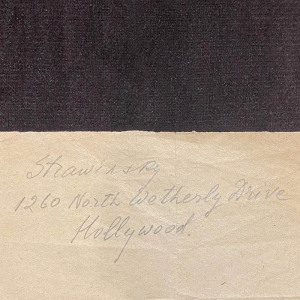 Strawinsky
1260 North Wetherly Drive
Hollywood.